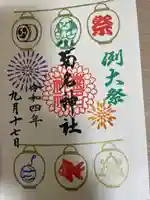 例大祭
祭
菊名神社
令和四年
九月十七日